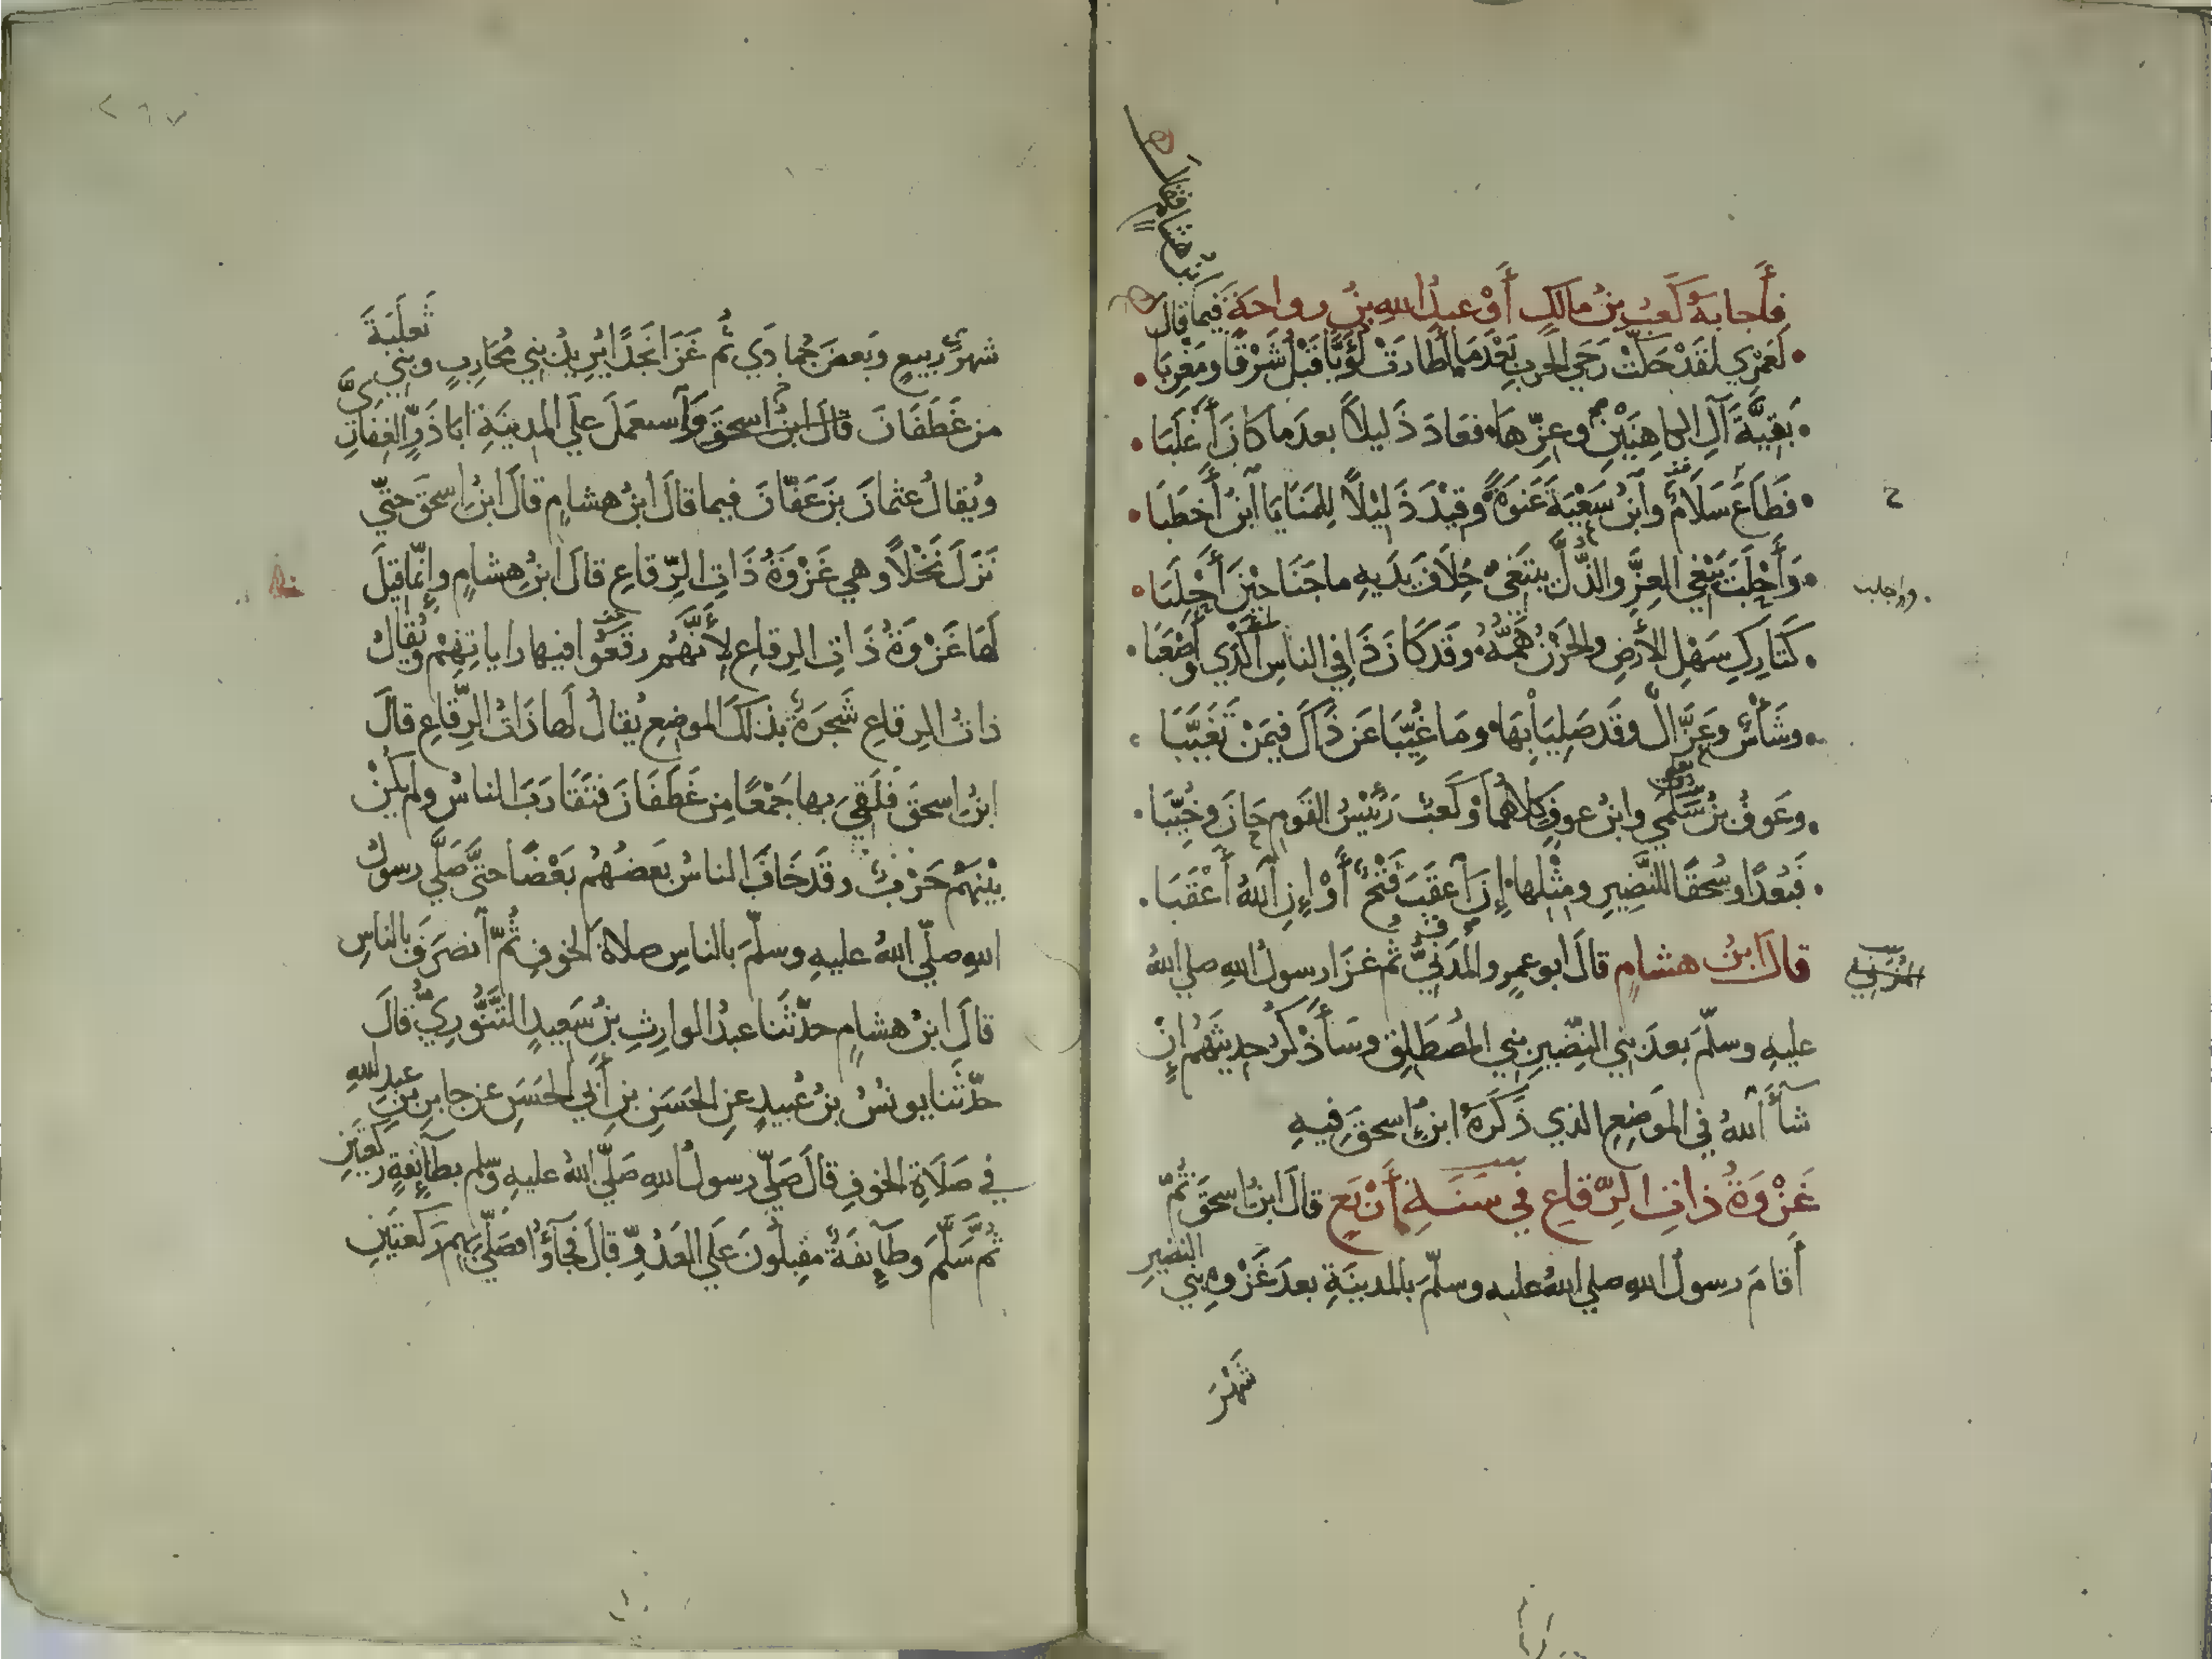 فَأَجابَهُ كَعْبُ بنُ مالكٍ أَوْ عبدُ اللهِ بنُ رواحةَ فيما قالَ
ابنُ هشامٍ فقالَ
لَعَمْري لقَدْ حَكَّتْ رَحَى الحربِ بَعْدَمَا أَطارَتْ لُؤَيًّا قَبْلُ شَرْقًا ومَغْرِبَا
بَقِيَّةَ آلِ الكاهِنَيْنِ وعِزِّهَا فعَادَ ذَليلاً بعدَما كانَ أَغْلَبَا
فَطَاحَ سَلامٌ وآبنُ سَعْيَةَ عَنْوَةً وقِيْدَ ذَليْلاً لِلمَنَايَا آبنُ أَخطَبَا
وَأَجْلَبَ يَبْغي العِزَّ والذُّلَّ يبتَغي خِلافَ يَدَيهِ ما جَنَا حِيْنَ أَجْلَبَا
واجلبت
كَتَارِكِ سَهْلِ الأَرضِ والحَزْنُ هَمُّهُ وقَد كَانَ ذَا في الناسِ أَكْدَي وأَصْعَبَا
وشَأْسٌ وعَزَّالٌ وقَد صَلِيَا بِهَا ومَا غُيِّبَا عَن ذَاكَ فيمَنْ تَغَيَّبَا
وعَوفُ بنُ سَلْمَي وابنُ عوفٍ كلاهُمَا وكَعبٌ رَئيسُ القَومِ حَانَ وخُيِّبَا
فَبُعْدًا وسُحقًا للنَّضِيرِ ومِثْلِها إِنَ آعقَبَ فَتْحٌ أَوْ إِنِ اللهُ أَعْقَبَا
قالَ ابنُ هشامٍ قالَ ابو عمرٍو المَدَنيُّ ثم غزَا رسولُ اللهِ صلي اللهُ
المُزَنِي
عليهِ وسلّمَ بعدَ بني النَّضيرِ بني المُصطَلِقِ وسَأَذْكُرُ حديثَهُم إنْ
شآءَ اللهُ في المَوضِعِ الذي ذَكَرَهُ ابنُ إسحقَ فيهِ
غَزْوَةُ ذاتِ الرِّقاعِ في سَنَةِ أَرْبَعٍ قالَ ابنُ اسحقَ ثمّ
أَقامَ رسولُ اللهِ صلي اللهُ عليه وسلّمَ بالمدينَةِ بعدَ غَزْوةِ بني النضيرِ
شَهْرَ
٢٦٧
شهرَ رَبيعٍ وبَعضَ جُمادَي ثُم غَزَا نَجْدًا يُريدُ بني مُحَارِبٍ وبني ثَعلَبَةَ
من غَطَفَانَ قالَ ابنُ اسحقَ وَآستعمَلَ عَلَي المدينَةِ ابا ذَرٍّ الغِفارِيَّ
ويُقالُ عثمانَ بنَ عَفّانَ فيما قالَ ابنُ هشامٍ قالَ ابنُ اسحقَ حتّي
نَزَلَ نَخْلاً وهي غَزْوَةُ ذَاتِ الرِّقاعِ قالَ ابنُ هِشامٍ وإنّما قيلَ
لَهَا غَزْوَةُ ذَاتِ الرِقاعِ لأَنَّهُم رقَعُوا فيها راياتِهُم ويُقالُ
ذاتُ الرِقاعِ شَجَرَةٌ بذلكَ الموضِعِ يُقالُ لَها ذَاتُ الرِّقاعِ قالَ
ابنُ اسحقَ فلَقِيَ بها جَمْعًا مِن غَطَفَانَ فتَقَارَبَ الناسُ ولم يكُنْ
بيْنَهُمْ حَرْبٌ وقَد خَافَ الناسُ بَعضُهُم بَعْضًا حتَّي صَلَّي رسولُ
اللهِ صلّي اللهُ عليهِ وسلّمَ بالناسِ صلاةَ الخوفِ ثُمّ آنصَرَفَ بالناسِ
قالَ ابنُ هشامٍ حدّثَنا عبدُ الوارِثِ بنُ سَعيدٍ التَّنُّوريُّ قالَ
حدّثَنا يونُسُ بنُ عُبيدٍ عنِ الحَسَنِ بنِ أَبي الحَسَنِ عن جابرِ بنِ عبدِ اللهِ
في صَلَاةِ الخوفِ قالَ صَلَّي رسولُ اللهِ صَلَّي اللهُ عليهِ وسلم بطآئفَةٍ ركعتَينِ
ثُم سَلَّمَ وطآئِفَةٌ مُقبِلُونَ عَلَي العَدُوِّ قالَ فجَآؤُا فصَلَّي بِهِم رَكعتَيْنِ